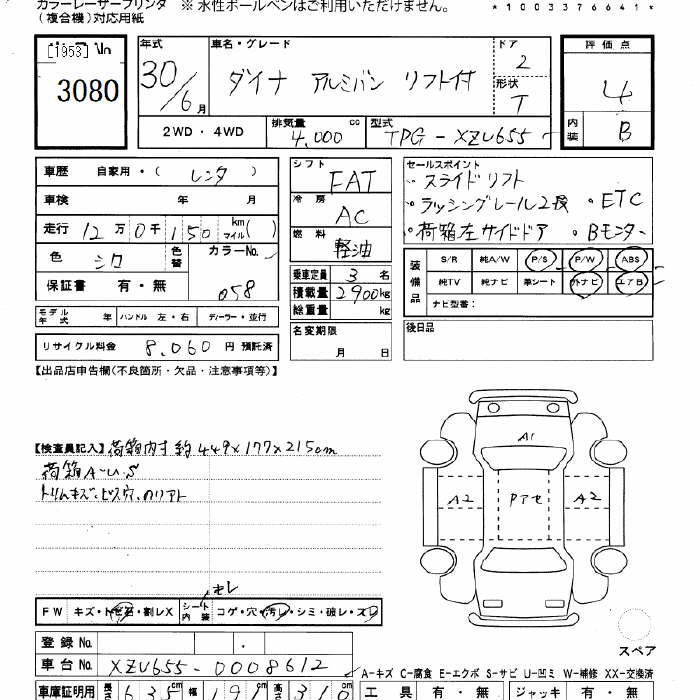 カラーレーザープリンタ ※ 水性ボールペンはご利用いただけません。
(複合機)対応用紙
*1003376641*
[1953] No
3080
年式 車名・グレード ドア 評価点
30/6月 ダイナ アルミバン リフト付 2 4
形状 T
2WD・4WD 排気量 cc 4.000 型式 TPG-XZU655 内装 B
車歴 自家用・( レンタ )
車検 年 月
走行 12万0千150 km マイル( )
色 シロ 色替 カラーNo.
保証書 有・無 058
モデル年式 年 ハンドル 左・右 ディーラー・並行
リサイクル料金 8.060 円 預託済
シフト FAT
冷房 AC
燃料 軽油
乗車定員 3 名
積載量 2900kg
総重量 kg
名変期限
月 日
セールスポイント
・スライドリフト
・ラッシングレール2段 ・ETC
・荷箱左サイドドア ・Bモニター
装備品 S/R 純A/W P/S P/W ABS
純TV 純ナビ 革シート 外ナビ エアB
ナビ型番:
後日品
【出品店申告欄(不良箇所・欠品・注意事項等)】
【検査員記入】荷箱内寸約449×177×215cm
荷箱A-U.S
トリムキズ、ビス穴、のリアト
A1
A2 Pアセ A2
スペア
セレ
FW キズ・ト石・割レX シート内装 コゲ・穴・汚レ・シミ・破レ・スレ
登録No.
車台No. XZU655-0008612
A-キズ C-腐食 E-エクボ S-サビ U-凹ミ W-補修 XX-交換済
車庫証明用 長さ 635cm 幅 191cm 高さ 310cm
工具 有・無 ジャッキ 有・無